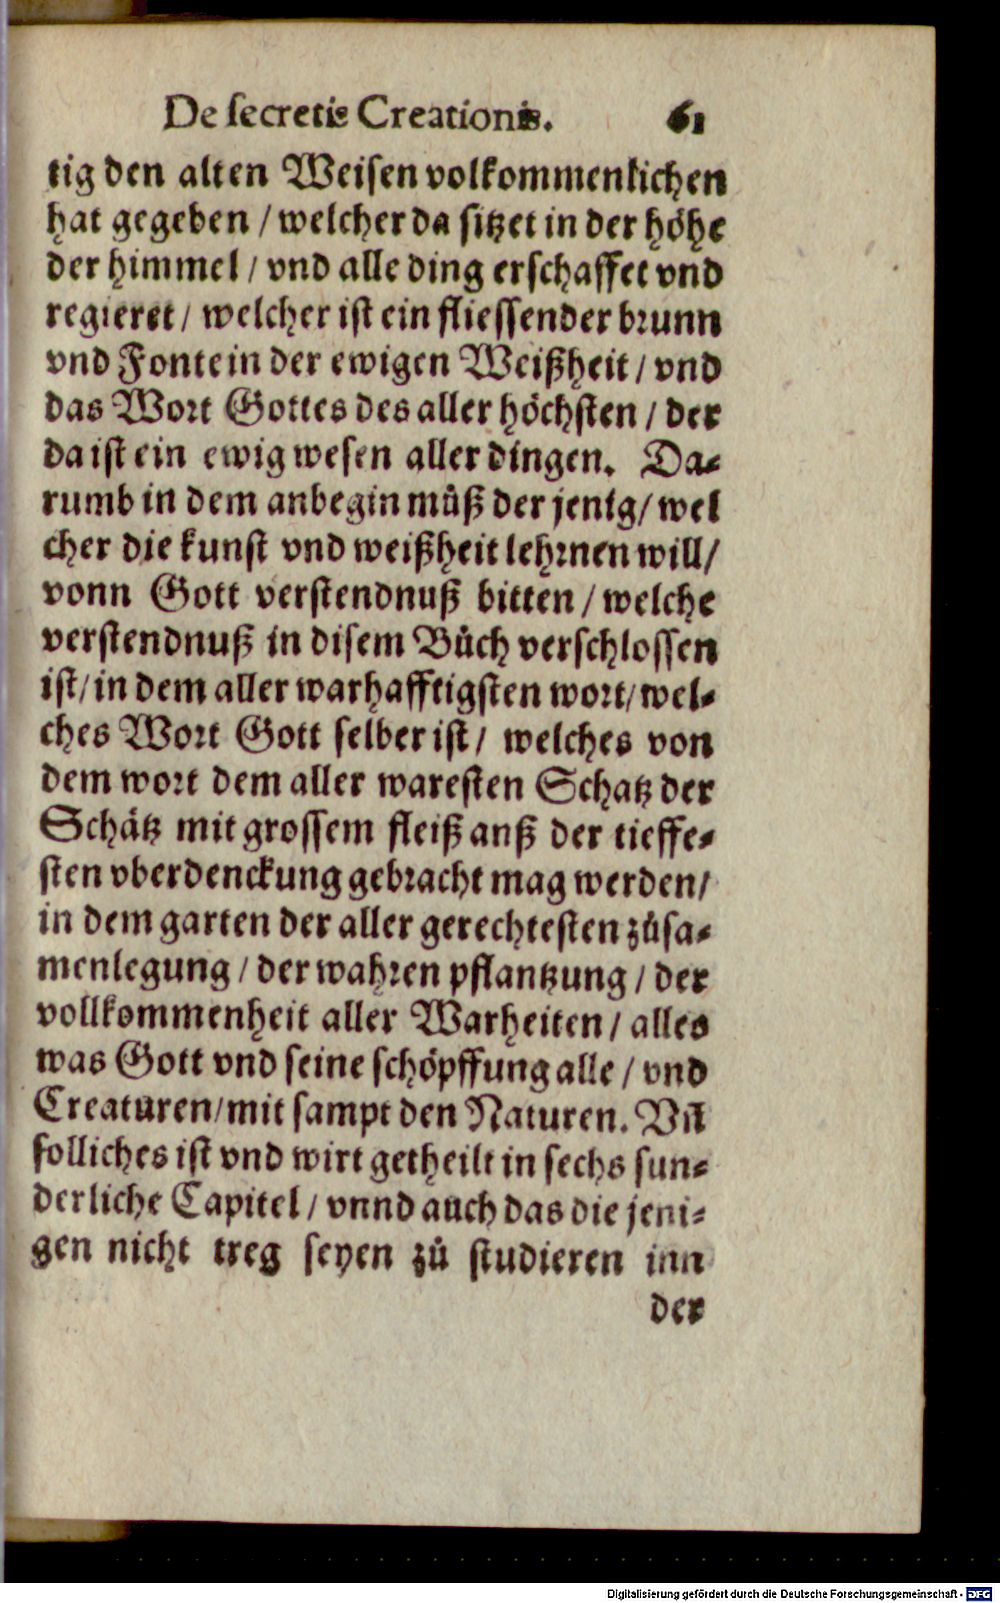 De secretis Creationis. 61
tig den alten Weisen volkommenlichen
hat gegeben / welcher da sitzet in der höhe
der himmel / vnd alle ding erschaffet vnd
regieret / welcher ist ein fliessender brunn
vnd Fontein der ewigen Weißheit / vnd
das Wort Gottes des aller höchsten / der
da ist ein ewig wesen aller dingen. Da-
rumb in dem anbegin můß der jenig / wel
cher die kunst vnd weißheit lehrnen will /
vonn Gott verstendnuß bitten / welche
verstendnuß in disem Bůch verschlossen
ist / in dem aller warhafftigsten wort / wel-
ches Wort Gott selber ist / welches von
dem wort dem aller waresten Schatz der
Schätz mit grossem fleiß anß der tieffe-
sten vberdenckung gebracht mag werden /
in dem garten der aller gerechtesten zůsa-
menlegung / der wahren pflantzung / der
vollkommenheit aller Warheiten / alles
was Gott vnd seine schöpffung alle / vnd
Creaturen / mit sampt den Naturen. Vñ
solliches ist vnd wirt getheilt in sechs sun-
derliche Capitel / vnnd auch das die jeni-
gen nicht treg seyen zů studieren inn
der
Digitalisierung gefördert durch die Deutsche Forschungsgemeinschaft - DFG